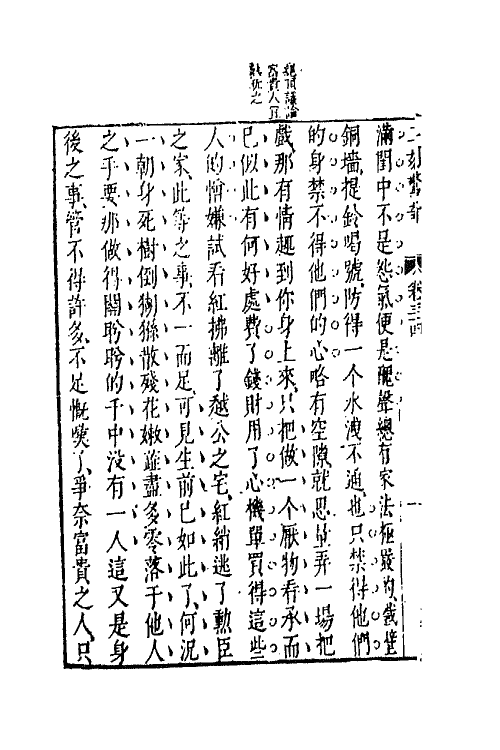 二刻驚奇 卷三十四 一
滿閨中不是怨氣便是醜聲總有家法極嚴的鐵壁
銅墻提鈴喝號防得一个水洩不通也只禁得他們
的身禁不得他們的心略有空隙就思量弄一場把
戲那有情趣到你身上來只把做一个厭物看承而
已似此有何好處費了錢財用了心機單買得這些
人的憎嫌試看紅拂離了越公之宅紅綃逃了勲臣
之家此等之事不一而足可見生前已如此了何況
一朝身死樹倒猢猻散殘花嫩蘂盡多零落于他人
之手要那做得關盼盼的千中没有一人這又是身
後之事管不得許多不足慨嘆了爭奈富貴之人只
議論
富貴人宜